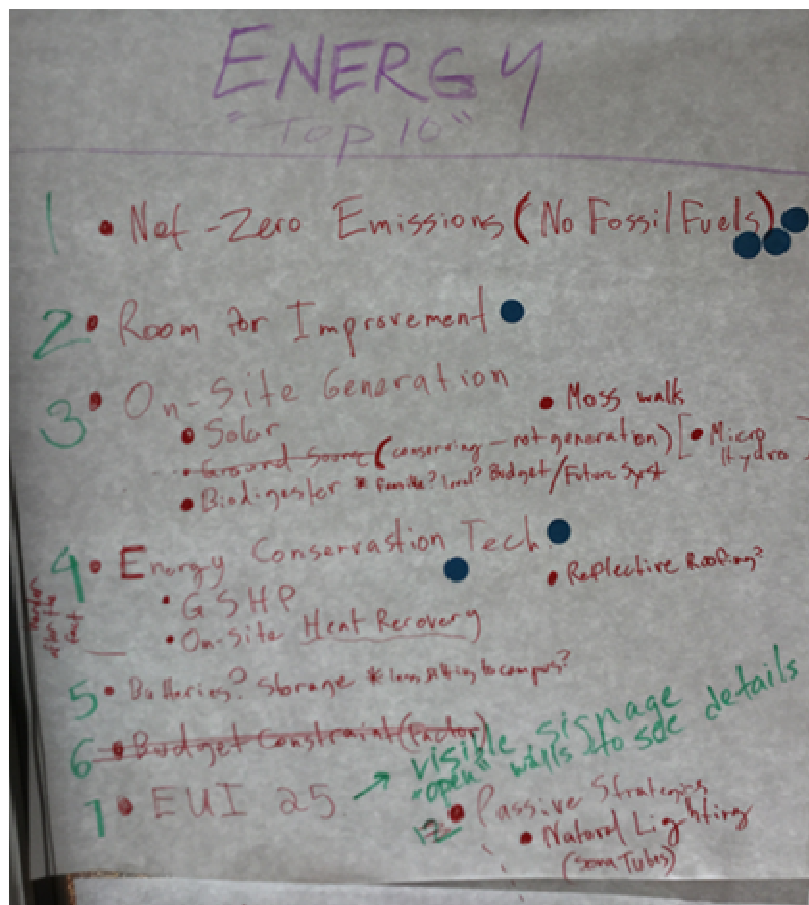 ENERGY
"Top 10"
1 • Net-Zero Emissions (No Fossil Fuels)
2 • Room for Improvement
3 • On-Site Generation
• Moss walk
• Solar
• Ground Source (conserving - not generation) [• Micro Hydro]
• Biodigester * Feasible? Local? Budget/Future Syst
4 • Energy Conservastion Tech.
• Reflective Roofing?
• GSHP
harder after the fact
• On-Site Heat Recovery
5 • Batteries? Storage * to campus?
6 • Budget Constraint (Factor)
7 • EUI 25 → visible signage
"open" walls to see details
• Passive Strategies
• Natural Lighting
(Sona Tubes)